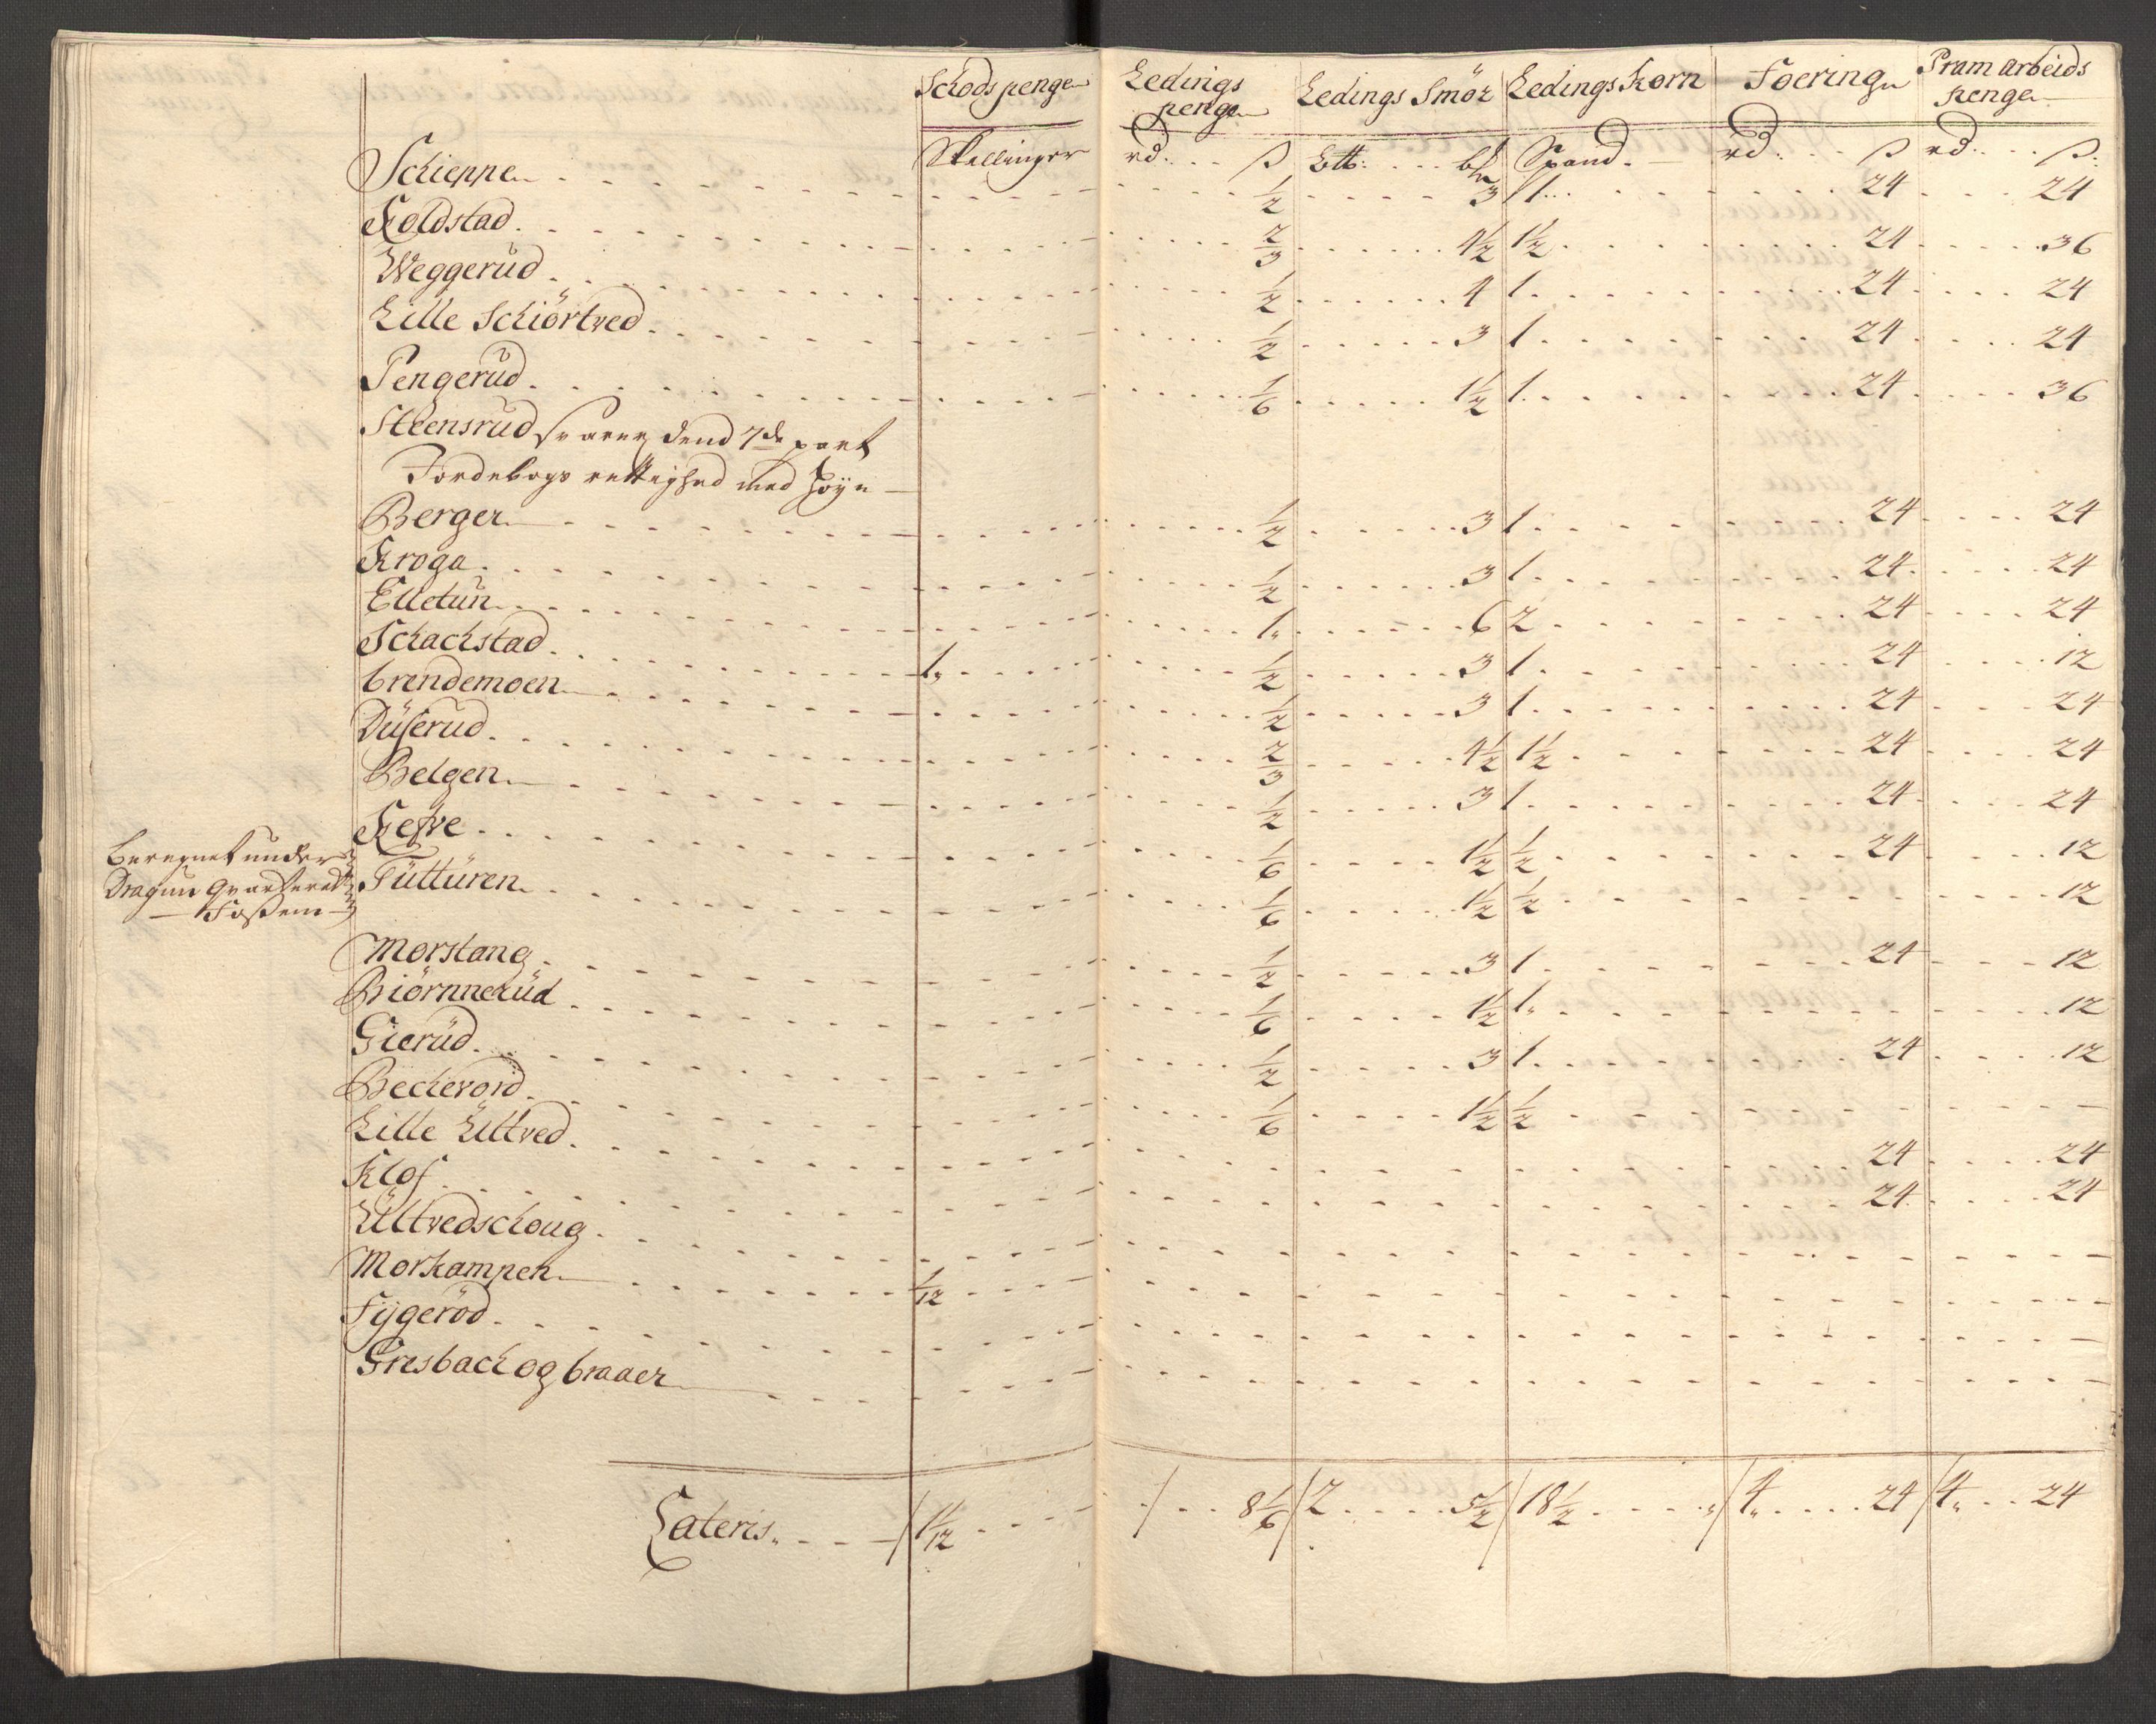 Schods penge Ledings penge Ledings Smör Ledings Korn Foering Pram arbeids penge
Skellinger rd: ß Lltt: bs Spand. rd: ß rd: ß:
Schieppe 1/2 3 1 24 24
Koldstad 2/3 4 1/2 1 1/2 24 36
Weggerud 1/2 4 1 24 24
Lille Schiörtved 1/2 3 1 24 24
Pengerud 1/6 1 1/2 1 24 36
Steensrud svarer dend 7de part
Jordebogs rettighed med Höye
Berger 1/2 3 1 24 24
Kroga 1/2 3 1 24 24
Elletun 1 6 2 24 24
Schachstad 1 1/2 3 1 24 12
brendemoen 1/2 3 1 24 24
Düserud 2/3 4 1/2 1 1/2 24 24
Belgen 1/2 3 1 24 24
Kefve 1/6 1 1/2 1/2 24 12
beregnet under
Dragun Qvarteret
Fossem
Tütturen 1/6 1 1/2 1/2 12
Morstang 1/2 3 1 24 12
Biörnnerüd 1/6 1 1/2 1 12
Gierüd 1/2 3 1 24 12
Beckevord 1/6 1 1/2 1/2
Lille Ültved 24 24
Klof 24 24
Ültvedschoug
Morkampen 1/12
Fygeröd
Gresbach og braaer
Lateris 1 1/12 8 1/6 2 5 1/2 18 1/2 4 24 4 24